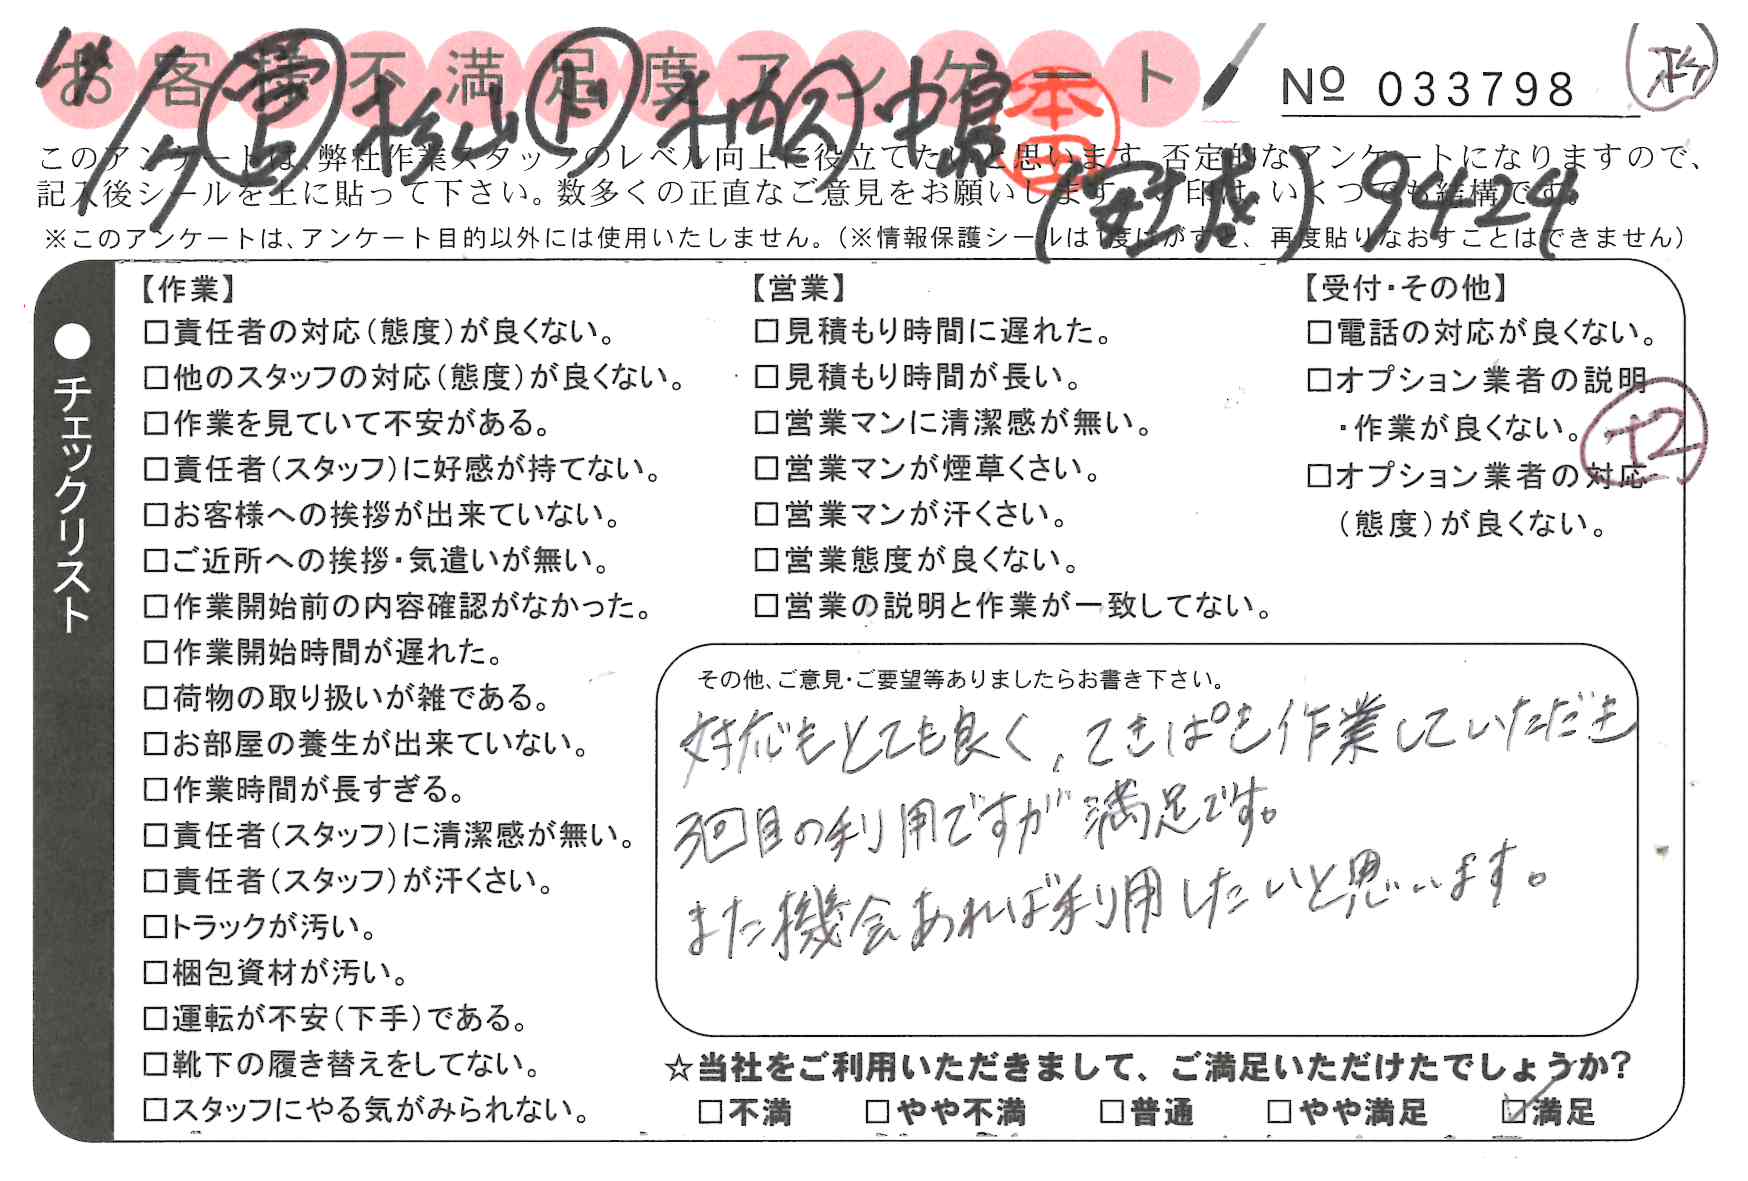 お客様不満足度アンケート
No 033798
杉
11/17 営 杉山 ド 村内 ス 中島 本田
(完成) 9424
このアンケートは、弊社作業スタッフのレベル向上に役立てたいと思います。否定的なアンケートになりますので、
記入後シールを上に貼って下さい。数多くの正直なご意見をお願いします。✓印は、いくつでも結構です。
※このアンケートは、アンケート目的以外には使用いたしません。(※情報保護シールは1度はがすと、再度貼りなおすことはできません)
●チェックリスト
【作業】
□責任者の対応(態度)が良くない。
□他のスタッフの対応(態度)が良くない。
□作業を見ていて不安がある。
□責任者(スタッフ)に好感が持てない。
□お客様への挨拶が出来ていない。
□ご近所への挨拶・気遣いが無い。
□作業開始前の内容確認がなかった。
□作業開始時間が遅れた。
□荷物の取り扱いが雑である。
□お部屋の養生が出来ていない。
□作業時間が長すぎる。
□責任者(スタッフ)に清潔感が無い。
□責任者(スタッフ)が汗くさい。
□トラックが汚い。
□梱包資材が汚い。
□運転が不安(下手)である。
□靴下の履き替えをしてない。
□スタッフにやる気がみられない。
【営業】
□見積もり時間に遅れた。
□見積もり時間が長い。
□営業マンに清潔感が無い。
□営業マンが煙草くさい。
□営業マンが汗くさい。
□営業態度が良くない。
□営業の説明と作業が一致してない。
【受付・その他】
□電話の対応が良くない。
□オプション業者の説明
・作業が良くない。
□オプション業者の対応
(態度)が良くない。
+2
その他、ご意見・ご要望等ありましたらお書き下さい。
対応もとても良く、てきぱき作業していただき
3回目の利用ですが満足です。
また機会あれば利用したいと思います。
☆当社をご利用いただきまして、ご満足いただけたでしょうか?
□不満 □やや不満 □普通 □やや満足 ☑満足